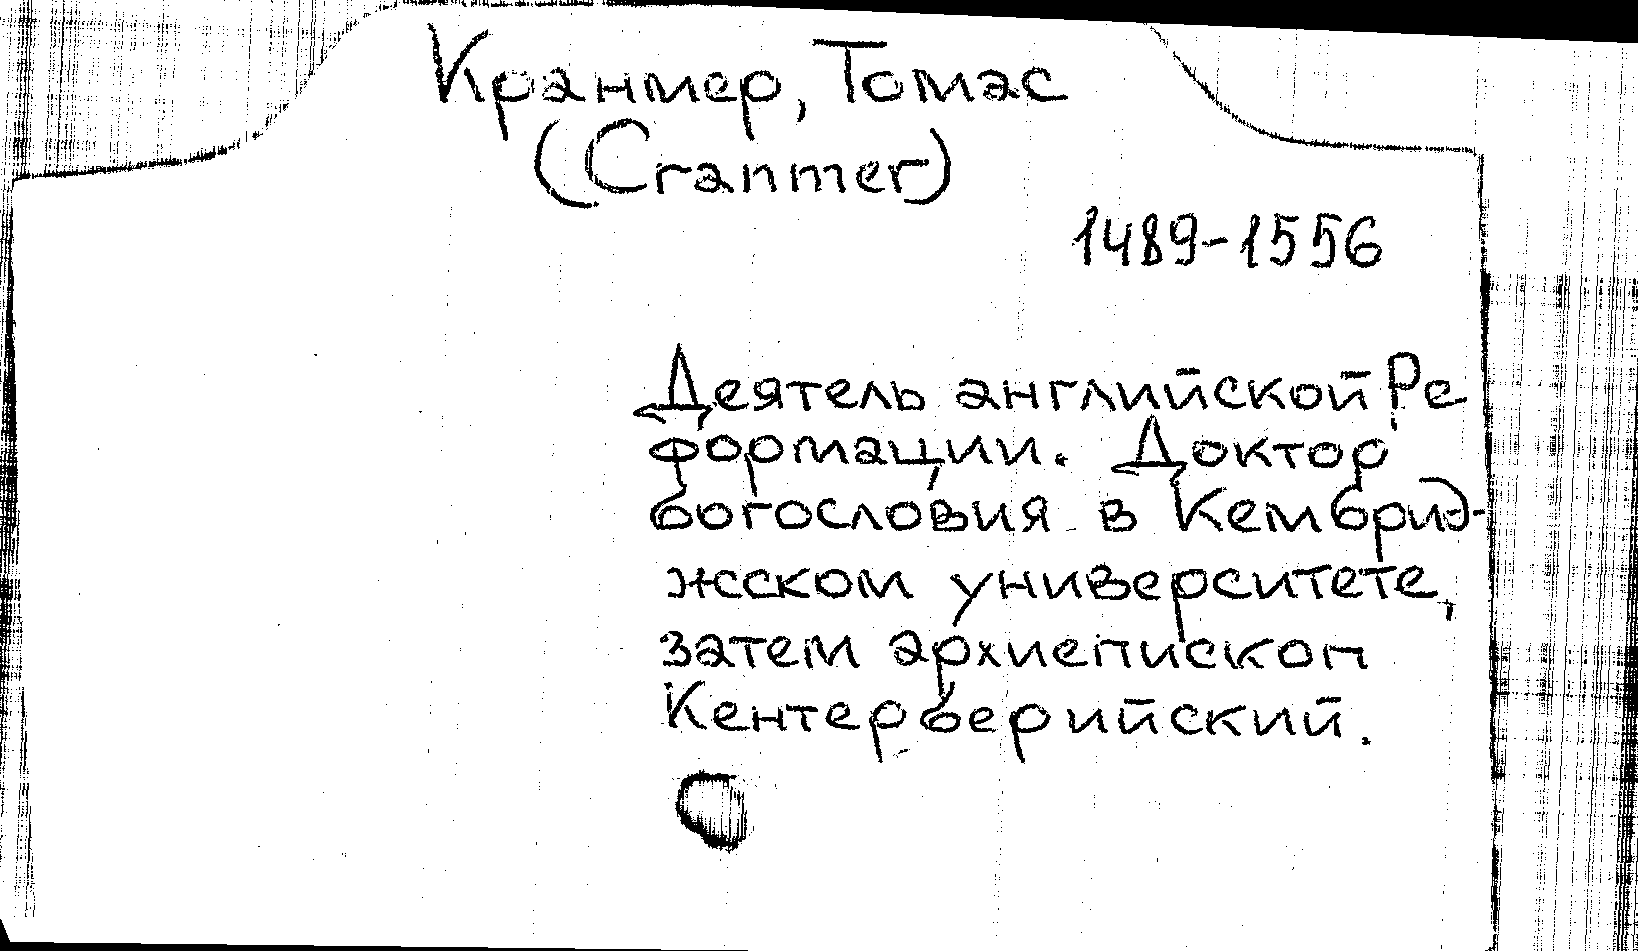 Кранмер, Томас
(Cranmer)
1489-1556
Деятель английской Ре
формации. Доктор
богословия в Кембрид-
жсском университете,
затем архиепископ
Кентерберийский.